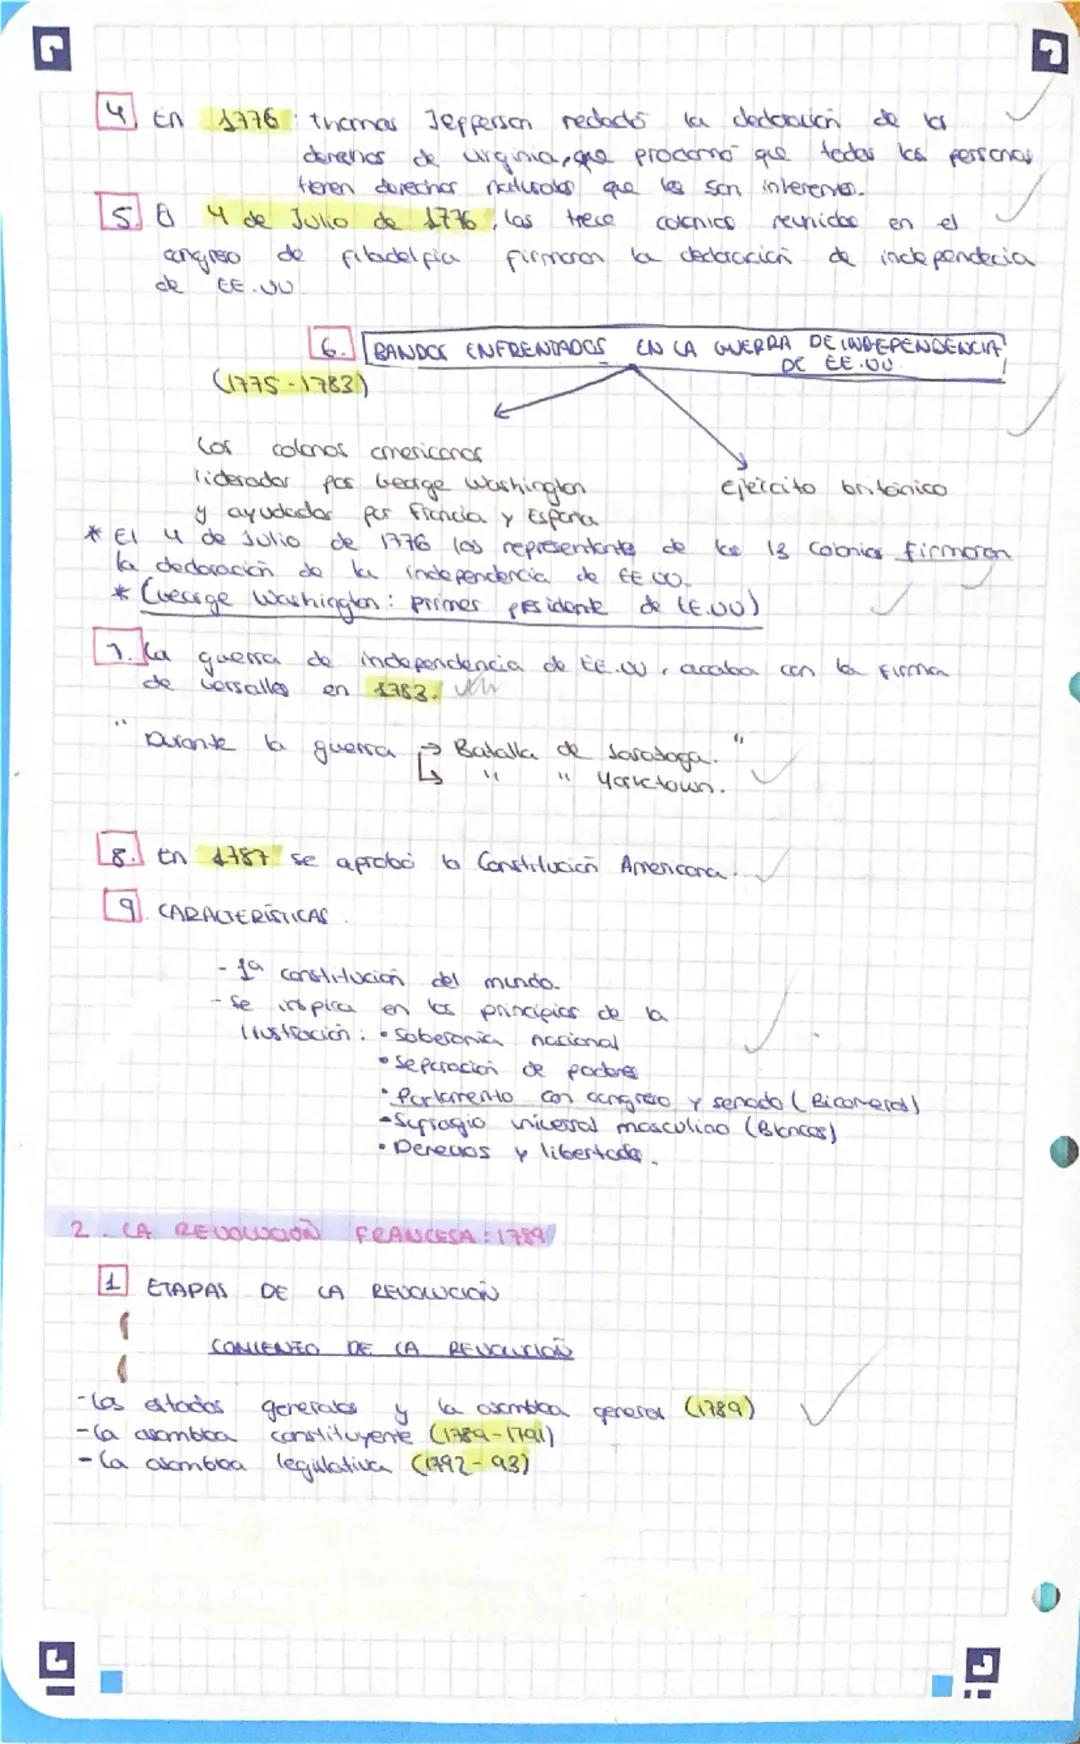 4 En 1776: thomas Jefferson redactó la declaración de los
derechos de virginia, que proclamó que todas las personas
tienen derechos naturales que les son inherentes.
5. El 4 de Julio de 1776, las trece colonias reunidas en el
congreso de filadelfia firmaron la declaración de independecia
de EE.UU
6. BANDOS ENFRENTADOS EN LA GUERRA DE INDEPENDENCIA
DE EE.UU.
(1775-1783)
Los colonos americanos
liderados por George Washington
y ayudados por Francia y España
ejército británico
* El 4 de Julio de 1776 los representantes de las 13 colonias firmaron
la declaración de la independencia de EE.UU.
* (George Washington: primer presidente de EE.UU)
7. La guerra de independencia de EE.UU, acaba con la firma
de versalles en 1783.
"Durante la guerra → Batalla de Saratoga."
↳ " " Yorktown.
8. En 1787 se aprobó la Constitución Americana.
9. CARACTERÍSTICAS.
- 1ª constitución del mundo.
- Se inspira en los principios de la
Ilustración: • Soberanía nacional
• Separación de poderes
• Parlamento con congreso y senado (Bicameral)
• Sufragio universal masculino (Blancos)
• Derechos y libertades.
2. LA REVOLUCIÓN FRANCESA: 1789
1 ETAPAS DE LA REVOLUCIÓN
COMIENZO DE LA REVOLUCIÓN
- Los estados generales y la asamblea general (1789)
- La asamblea constituyente (1789-1791)
- La asamblea legislativa (1792-93)